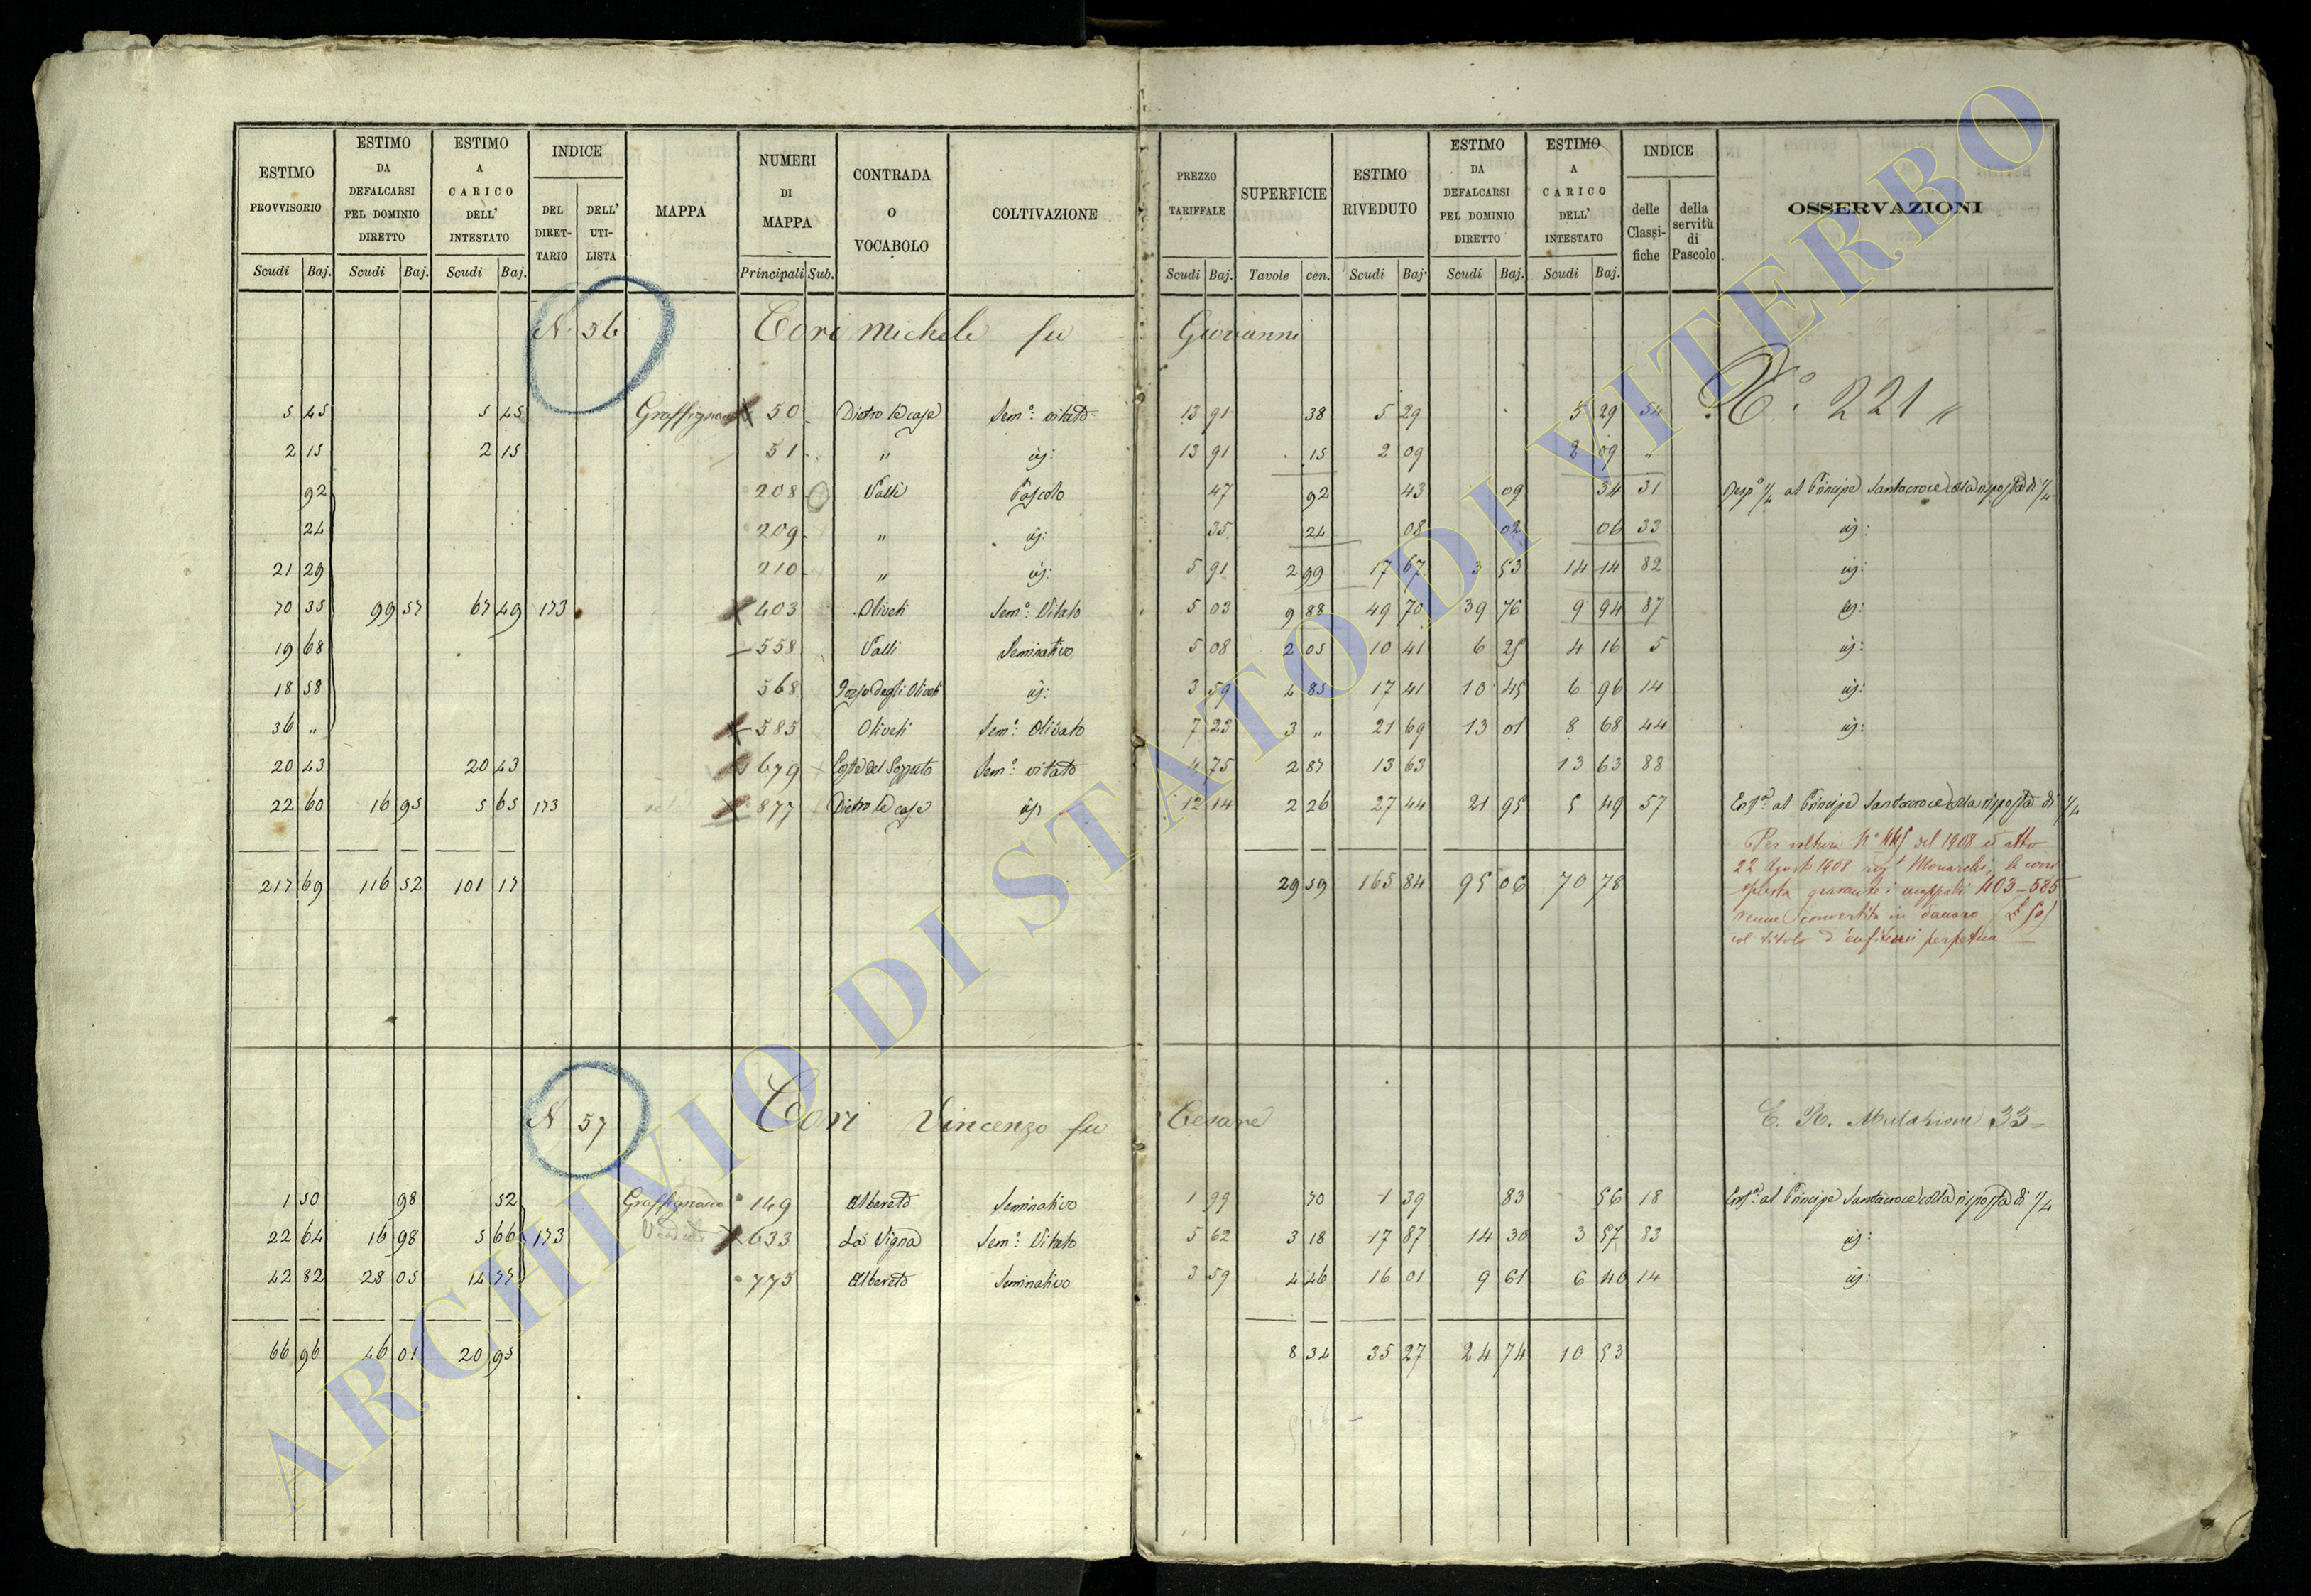 ESTIMO PROVVISORIO | ESTIMO DA DEFALCARSI PEL DOMINIO DIRETTO | ESTIMO A CARICO DELL' INTESTATO | INDICE DEL DIRETTARIO | DELL' UTILISTA | MAPPA | NUMERI DI MAPPA | CONTRADA O VOCABOLO | COLTIVAZIONE | PREZZO TARIFFALE | SUPERFICIE | ESTIMO RIVEDUTO | ESTIMO DA DEFALCARSI PEL DOMINIO DIRETTO | ESTIMO A CARICO DELL' INTESTATO | INDICE delle Classifiche | della servitù di Pascolo | OSSERVAZIONI
Scudi Baj. | Scudi Baj. | Scudi Baj. | Principali Sub. | Scudi Baj. | Tavole cen. | Scudi Baj. | Scudi Baj. | Scudi Baj.
N. 56 Cori Michele fu Giovanni
N.° 221 "
5 45 | 5 45 | Graffignano | 50 | Dietro le case | Sem.° vitato | 13 91 | 38 | 5 29 | 5 29 | 54
2 15 | 2 15 | 51 | " | id: | 13 91 | 15 | 2 09 | 2 09 | "
92 | 208 | Valli | Pascolo | 47 | 92 | 43 | 09 | 34 | 31 | al Principe Santacroce colla risposta di 1/4
24 | 209 | " | id: | 35 | 24 | 08 | 02 | 06 | 33 | id:
21 29 | 210 | " | id: | 5 91 | 2 99 | 17 67 | 3 53 | 14 14 | 82 | id:
70 35 | 99 57 | 67 49 | 173 | 403 | Oliveti | Sem.° Vitato | 5 03 | 9 88 | 49 70 | 39 76 | 9 94 | 87 | id:
19 68 | 558 | Valli | Seminativo | 5 08 | 2 05 | 10 41 | 6 25 | 4 16 | 5 | id:
18 58 | 568 | degli Oliveti | id: | 3 59 | 4 85 | 17 41 | 10 45 | 6 96 | 14 | id:
36 " | 585 | Oliveti | Sem.° Olivato | 7 23 | 3 " | 21 69 | 13 01 | 8 68 | 44 | id:
20 43 | 20 43 | 679 | Sem.° vitato | 4 75 | 2 87 | 13 63 | 13 63 | 88
22 60 | 16 95 | 5 65 | 173 | 877 | Dietro le case | id: | 12 14 | 2 26 | 27 44 | 21 95 | 5 49 | 57 | al Principe Santacroce colla risposta di 1/4
217 69 | 116 52 | 101 17 | 29 59 | 165 84 | 95 06 | 70 78
Per voltura N.° del 1908 e atto
22 Agosto 1908 la corri
sposta gravante i mappali 403-585
venne convertita in danaro
col titolo d'enfiteusi perpetua
N 57 Cori Vincenzo fu Cesare
C. R. Mutazione 33
1 50 | 98 | 52 | Graffignano | 149 | Albereto | Seminativo | 1 99 | 70 | 1 39 | 83 | 56 | 18 | al Principe Santacroce colla risposta di 1/4
22 64 | 16 98 | 5 66 | 173 | 633 | La Vigna | Sem.° Vitato | 5 62 | 3 18 | 17 87 | 14 30 | 3 57 | 83 | id:
42 82 | 28 05 | 14 77 | 775 | Albereto | Seminativo | 3 59 | 4 46 | 16 01 | 9 61 | 6 40 | 14 | id:
66 96 | 46 01 | 20 95 | 8 34 | 35 27 | 24 74 | 10 53
ARCHIVIO DI STATO DI VITERBO